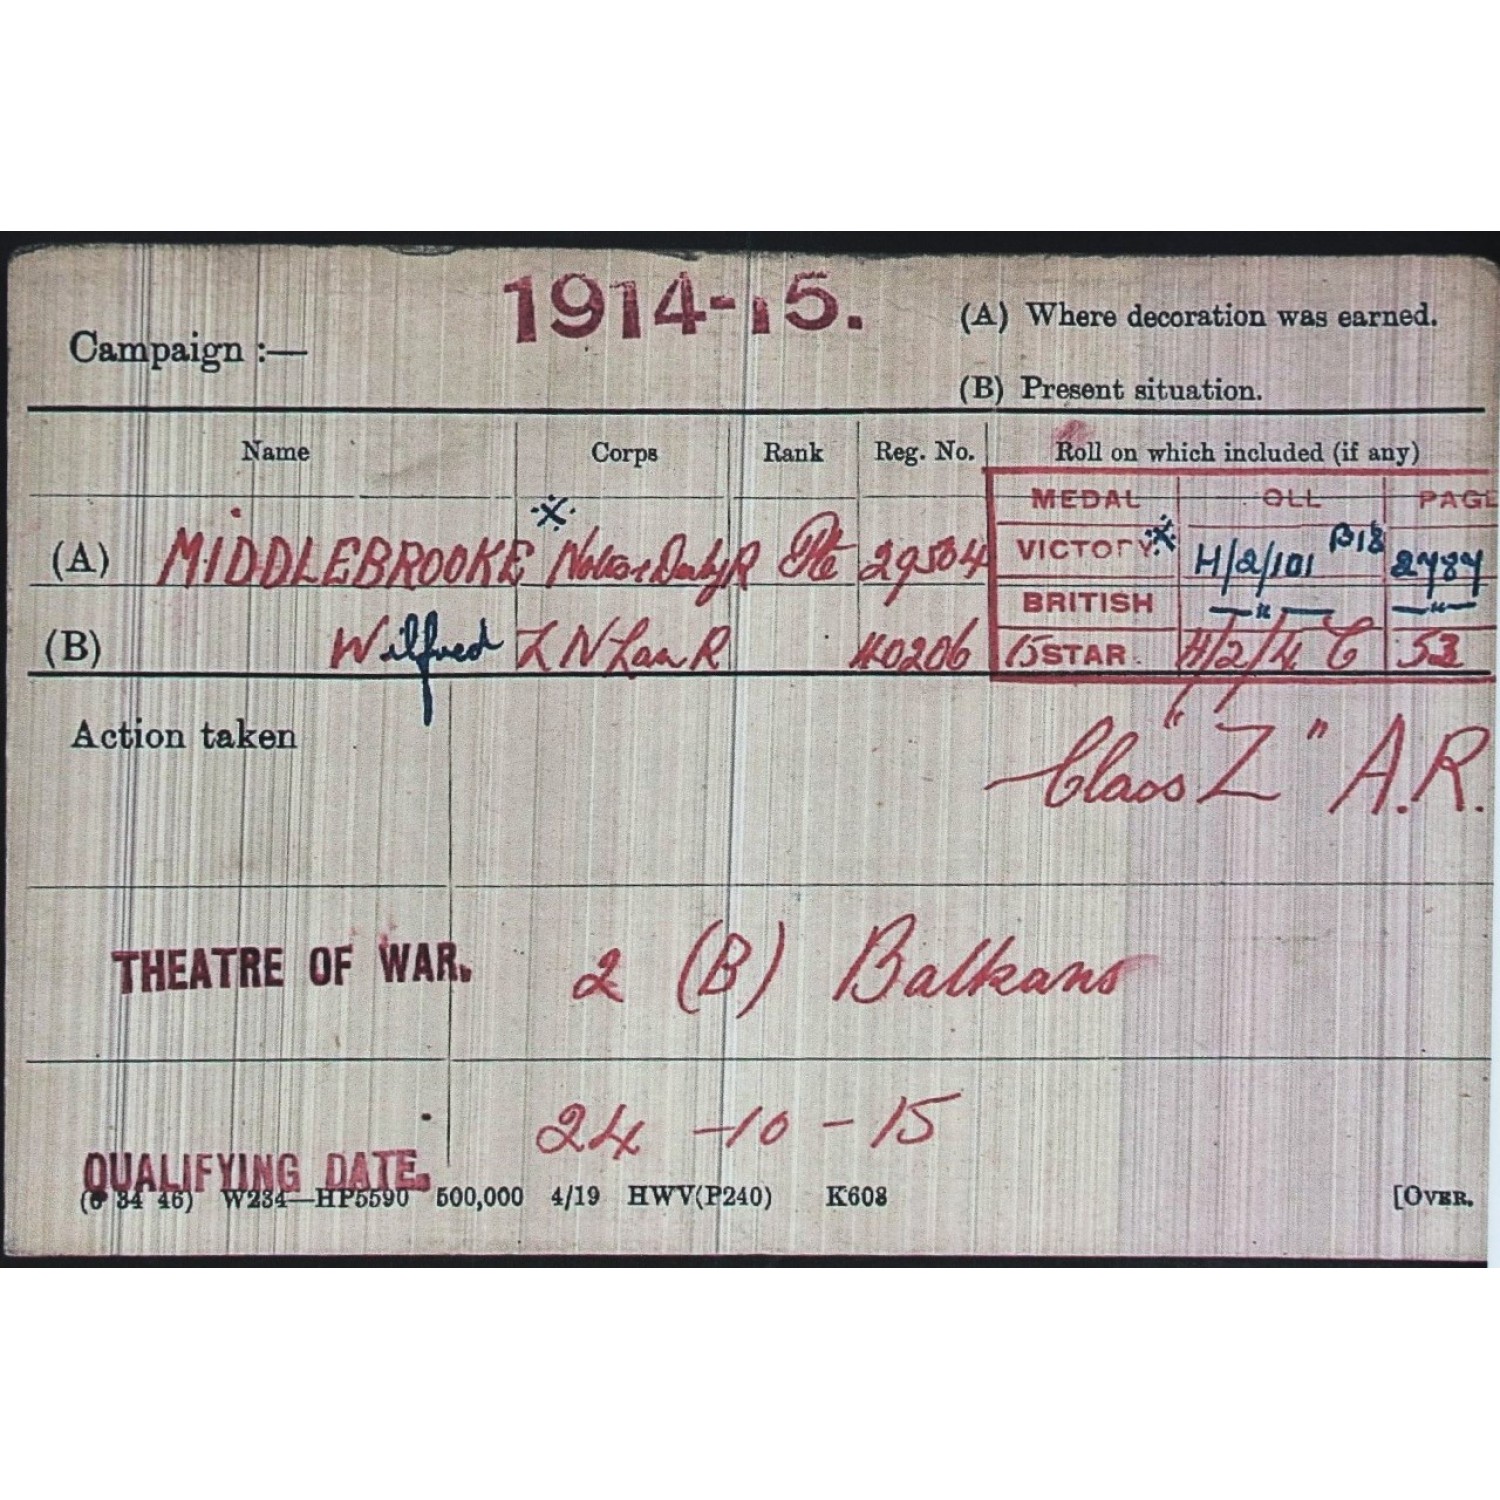 1914-15.
Campaign :—
(A) Where decoration was earned.
(B) Present situation.
Name Corps Rank Reg. No. Roll on which included (if any)
MEDAL OLL PAGE
(A) MIDDLEBROOKE Notts & Derby R Pte 29504 VICTORY H/2/101 B18 2787
BRITISH —"— —"—
(B) Wilfred L N Lan R 40206 15 STAR H/2/4 C 53
Action taken
Class "Z" A.R.
THEATRE OF WAR. 2 (B) Balkans
QUALIFYING DATE. 24-10-15
(6 34 46) W234—HP5590 500,000 4/19 HWV(P240) K608 [OVER.